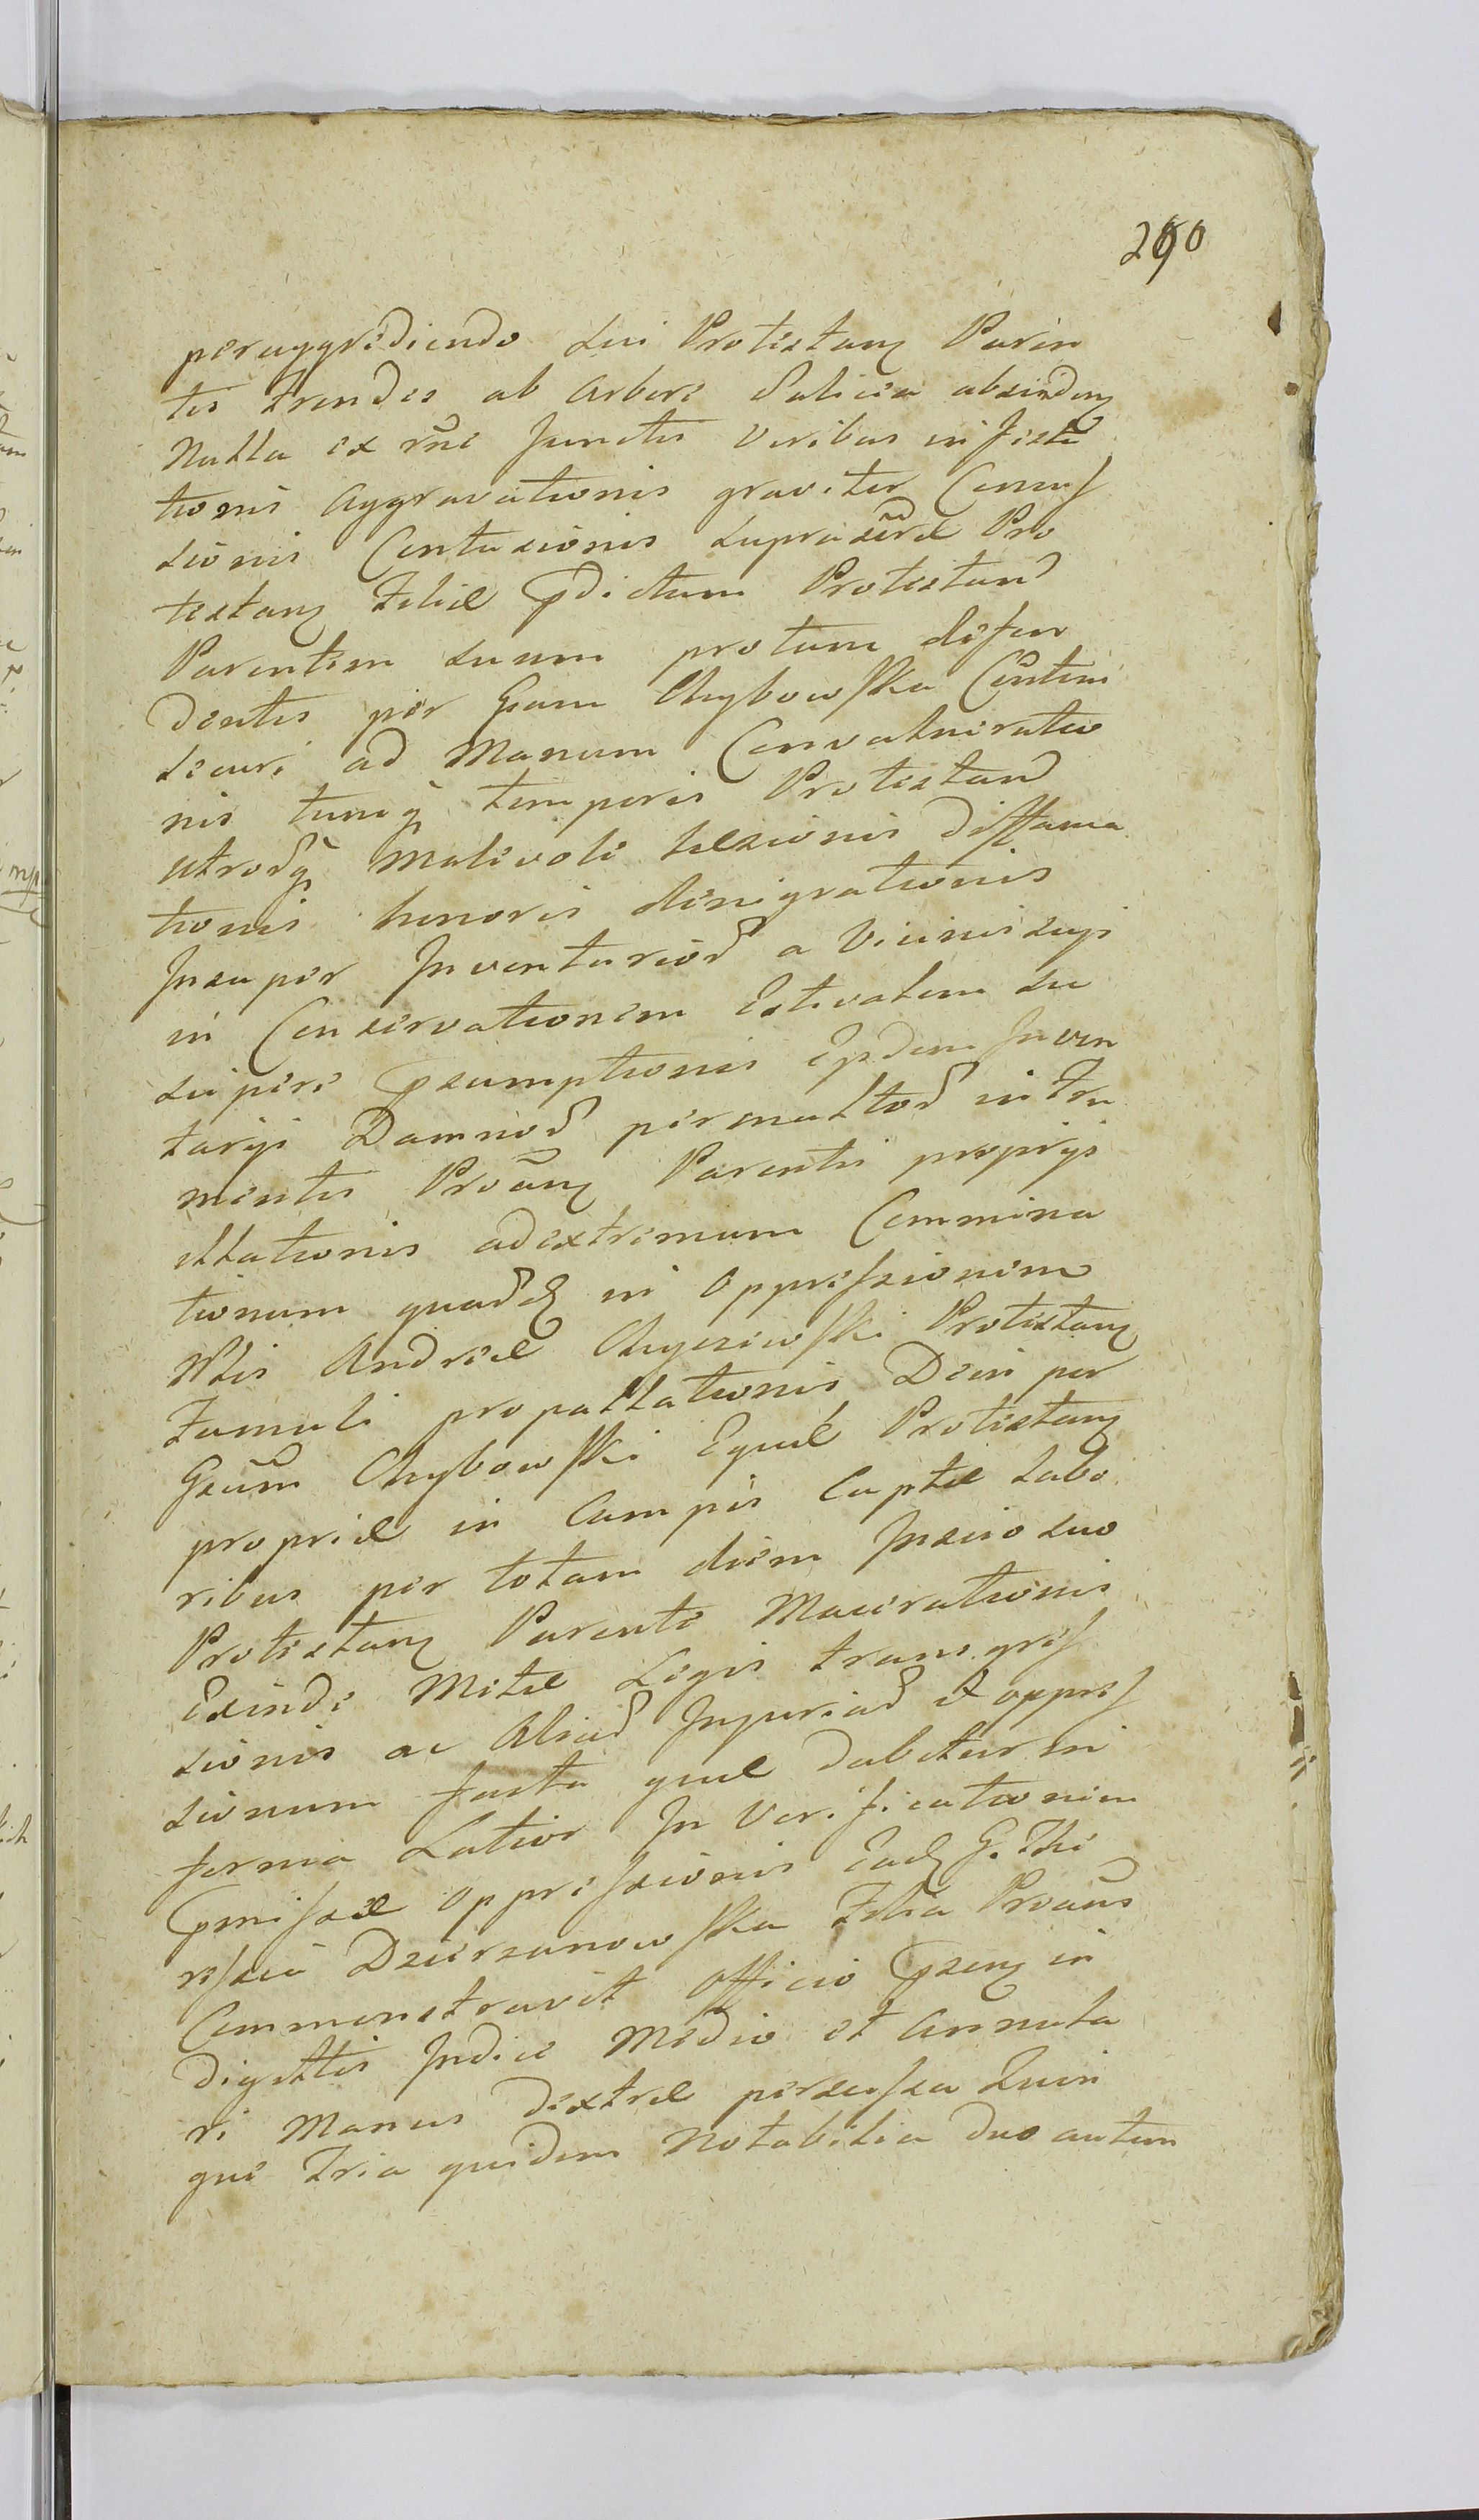 260
peraggrediendo sui Protestanz Paren
tis frondes ab arbore Salicea abscindenz
Nulla ex rñe Junctis viribus in festa
tionis Aggravationis graviter Concuss
sionis Contusionis suprascrae Pro
testanz Filiae pdictum Protestand
Parentem suum protunc defen
dentis per Gsam Chybowska Contem
securi ad Manum Convulneratio
nis tuncq temporis Protestand
utrosq Malevole laesionis diffama
tionis honoris denigrationis
Insuper Inventariod a Vicinis suis
in Conservationem Estivalem su
scipere psumptionis Epdem Inven
tarijs Damnod permultod in Fru
mentis Proanz Parentis proprijs
illationis ad extremum Commina
tionum quadz in oppressionem
Nlis Andreae Chyczewski Protestanz
Famuli propallationis Dein per
Gsum Chybowski Equae Protestanz
propriae in Campis Captae labo
ribus per totam diem Inscio suo
Protestanz Parente Macerationis
Exinde Mitae Legis transgres
sionis ac aliad Injuriad et oppres
sionum facta quae dabitur in
forma Latior In Verificationem
pmissae oppressionis Eadz G. The
ressia Dzierzanowska Filia Proans
Commonstravit officio psenz in
digitis Indice Medio et annula
ri Manus dextrae percussa Quin
que Tria quidem Notabilia duo autem